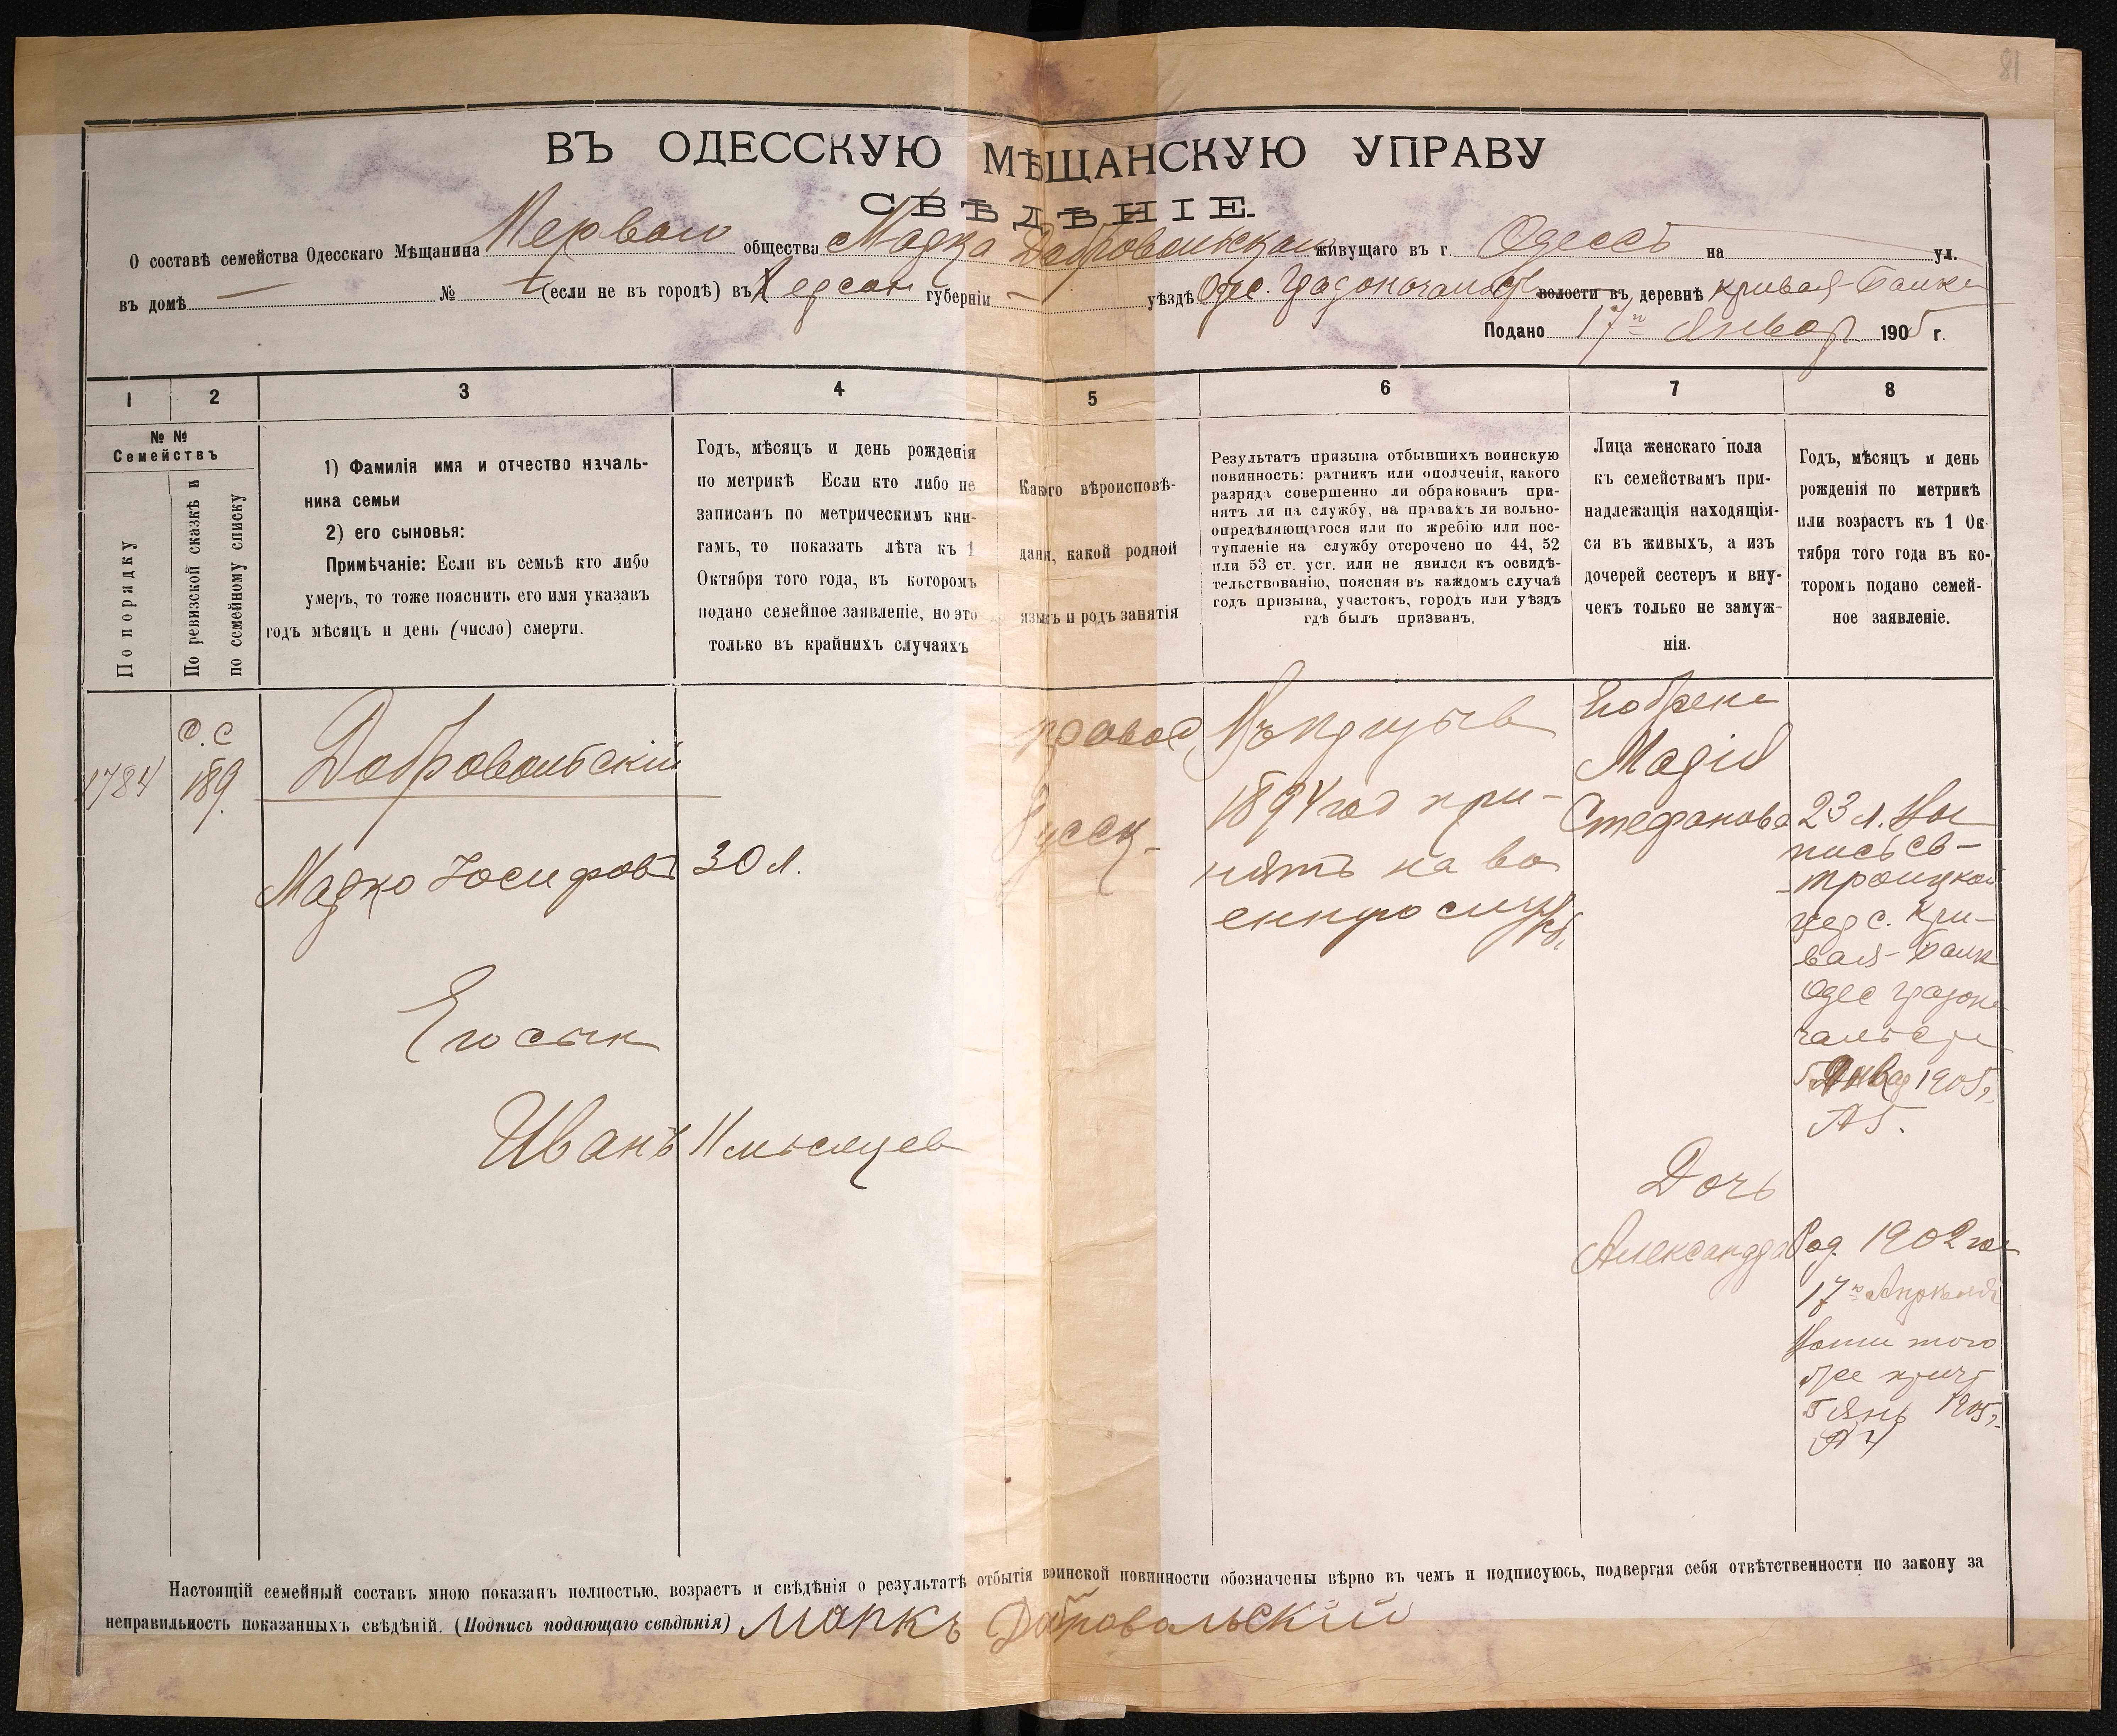 81
ВЪ ОДЕССКУЮ МѢЩАНСКУЮ УПРАВУ
СВѢДѢНІЕ.
О составѣ семейства Одесскаго Мѣщанина Перваго общества Марка Добровольскаго живущаго въ г. Одессѣ на ул.
въ домѣ — № (если не въ городѣ) въ Херсон губерніи — уѣздѣ Одес. Градоначальст волости въ деревнѣ Кривая-Балка
Подано 17го Январ 1905 г.
1 2 3 4 5 6 7 8
№ №
Семействъ
По порядку
По ревизской сказкѣ и
по семейному списку
1) Фамилія имя и отчество началь-
ника семьи
2) его сыновья:
Примѣчаніе: Если въ семьѣ кто либо
умеръ, то тоже пояснить его имя указавъ
годъ мѣсяцъ и день (число) смерти.
Годъ, мѣсяцъ и день рожденія
по метрикѣ Если кто либо не
записанъ по метрическимъ кни-
гамъ, то показать лѣта къ 1
Октября того года, въ которомъ
подано семейное заявленіе, но это
только въ крайнихъ случаяхъ
Какого вѣроисповѣ-
данія, какой родной
языкъ и родъ занятія
Результатъ призыва отбывшихъ воинскую
повинность: ратникъ или ополченія, какого
разряда совершенно ли обракованъ при-
нятъ ли на службу, на правахъ ли вольно-
опредѣляющагося или по жребію или пос-
тупленіе на службу отсрочено по 44, 52
или 53 ст. уст. или не явился къ освидѣ-
тельствованію, поясняя въ каждомъ случаѣ
годъ призыва, участокъ, городъ или уѣздъ
гдѣ былъ призванъ.
Лица женскаго пола
къ семействамъ при-
надлежащія находящія-
ся въ живыхъ, а изъ
дочерей сестеръ и вну-
чекъ только не замуж-
нія.
Годъ, мѣсяцъ и день
рожденія по метрикѣ
или возрастъ къ 1 Ок-
тября того года въ ко-
торомъ подано семей-
ное заявленіе.
1784
С.С
189
Добровольскій
Марко Іосифовъ 30 л.
Его сын
Иванъ 11 мѣсяцев
правос
Русск-
Въ призыв
1894 год при-
нятъ на во
енную служб.
Его жена
Марія
Стефанова
23 л.
Свь-
-троицкой
цер с. Кри-
вая-Балк
Одес градона
чальст
Январ 1905 г.
Дочь
Александра
Род. 1902 го
17го Апрѣля
того
же причт
5 Янв 1905 г.
Настоящій семейный составъ мною показанъ полностью, возрастъ и свѣдѣнія о результатѣ отбытія воинской повинности обозначены вѣрно въ чемъ и подписуюсь, подвергая себя отвѣтственности по закону за
неправильность показанныхъ свѣдѣній. (Подпись подающаго свѣдѣнія) Маркъ Добровольскій